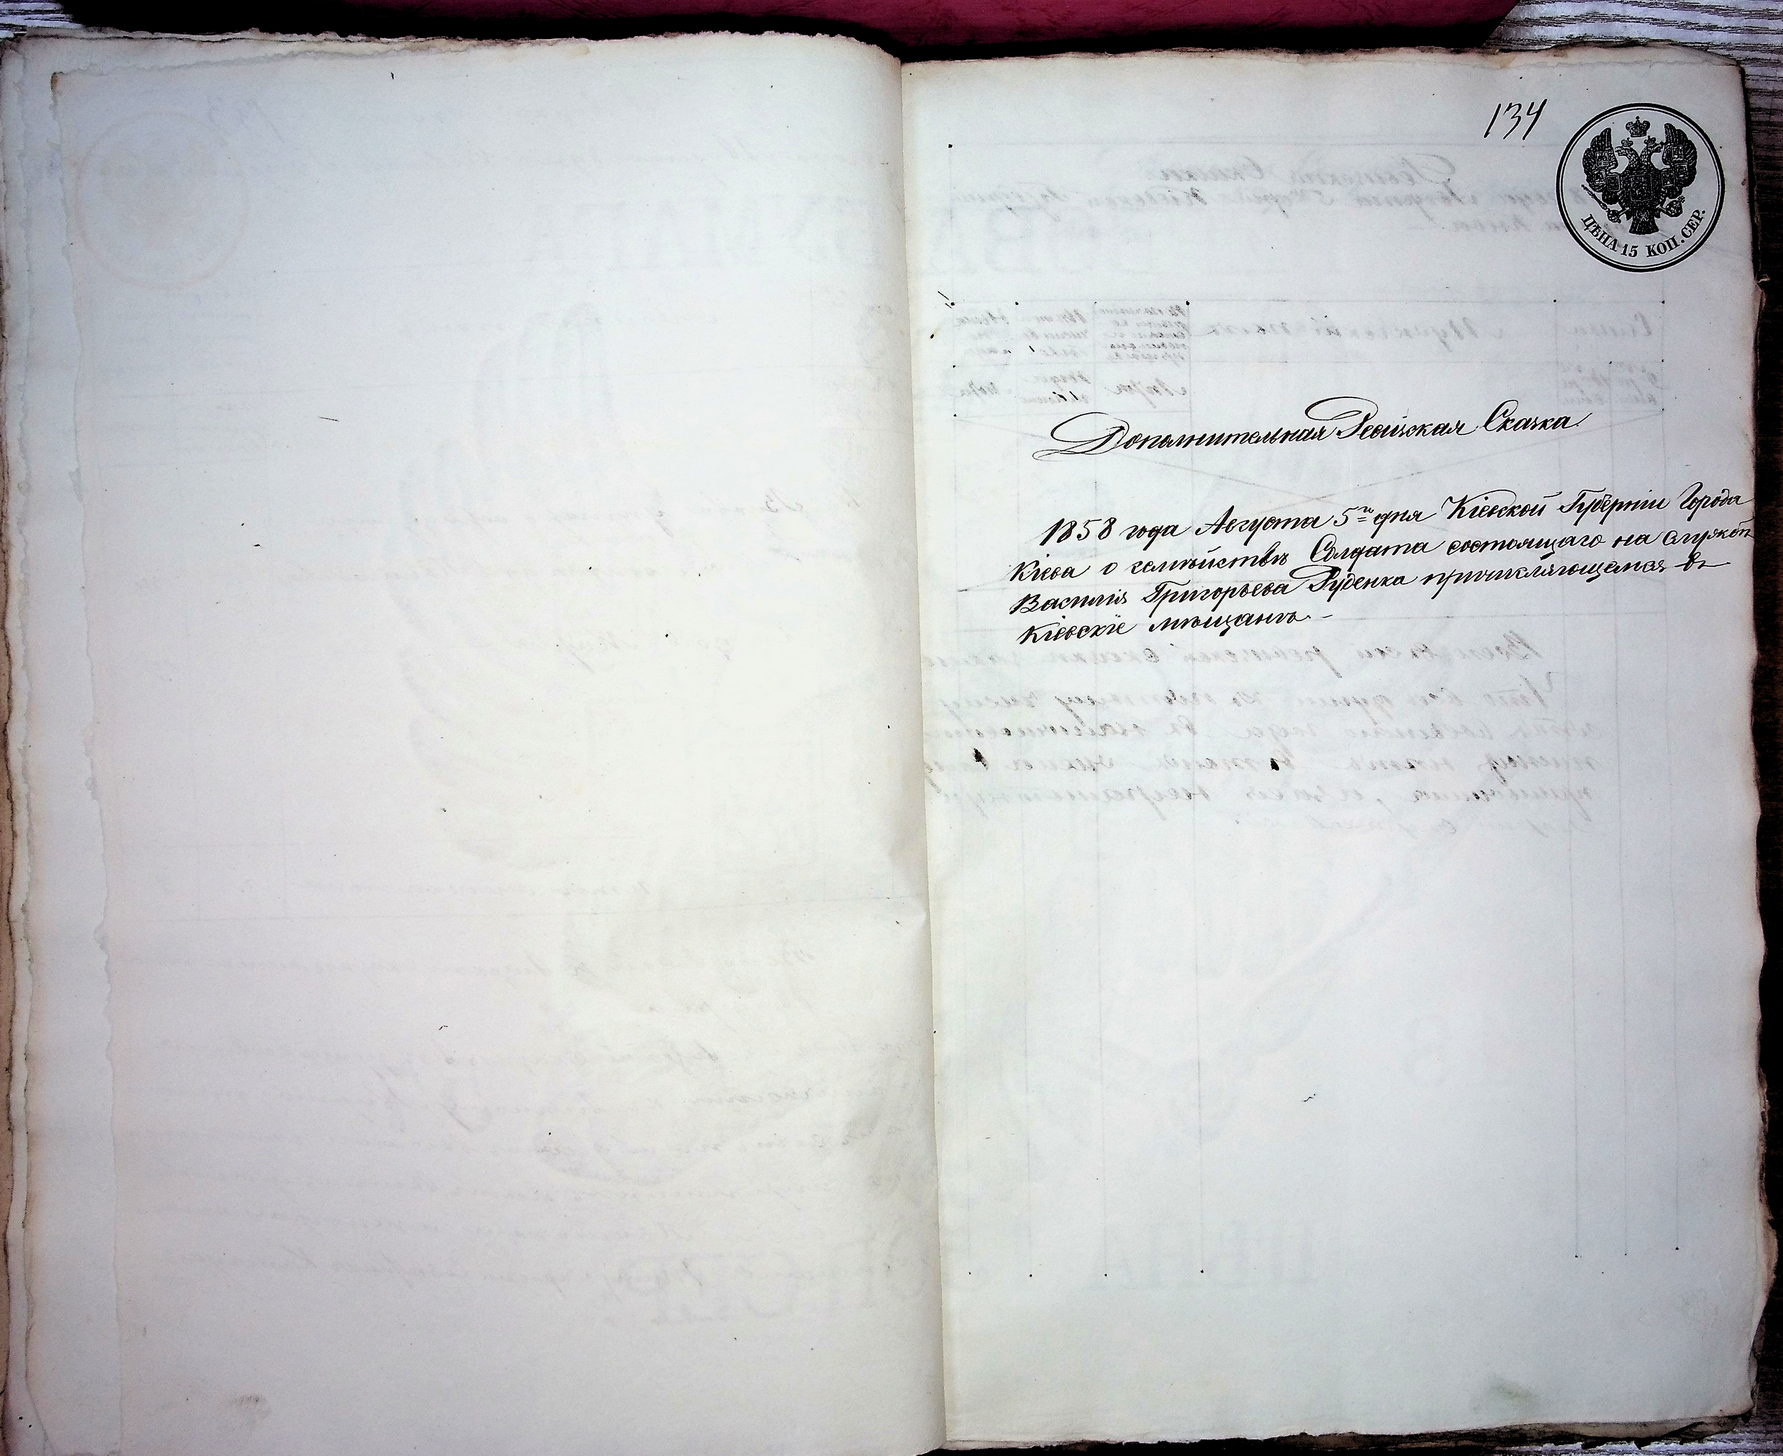 134
ЦѢНА 15 КОП. СЕР.
Дополнительная Ревизская Сказка
1858 года Августа 5го дня Кіевской Губерніи Города
Кіева о семѣйствѣ Солдата состоящаго на службѣ
Василія Григорьева Руденка причисляющемся въ
Кіевскіе мѣщанѣ. -